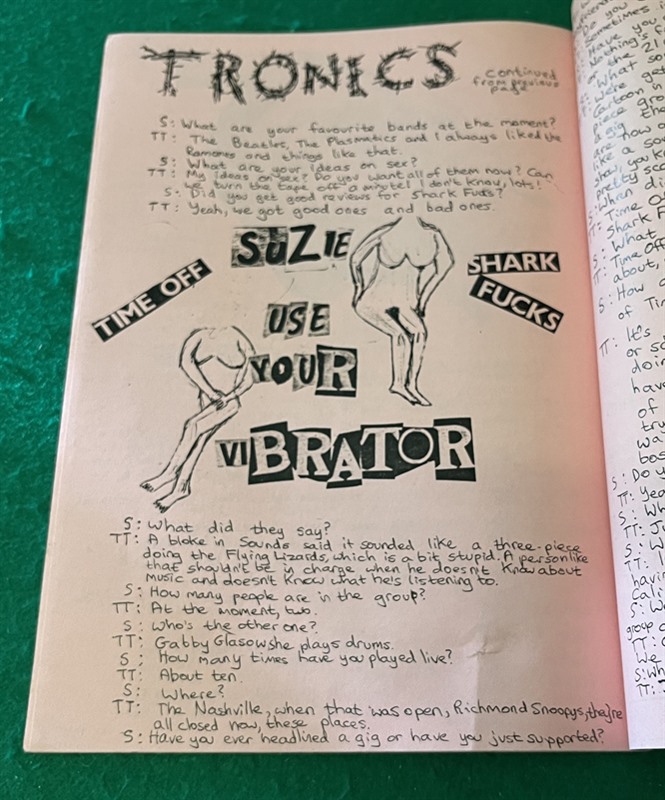 TRONICS
continued
from previous
page
S: What are your favourite bands at the moment?
TT: The Beatles, The Plasmatics and I always liked the
Ramones and things like that.
S: What are your ideas on sex?
TT: My ideas on sex? Do you want all of them now? Can
we turn the tape off a minute! I don't know, lots!
S: Did you get good reviews for Shark Fucks?
TT: Yeah, we got good ones and bad ones.
SUZIE
TIME OFF
SHARK
FUCKS
USE
YOUR
VIBRATOR
S: What did they say?
TT: A bloke in Sounds said it sounded like a three-piece
doing the Flying Lizards, which is a bit stupid. A person like
that shouldn't be in charge when he doesn't know about
music and doesn't know what he's listening to.
S: How many people are in the group?
TT: At the moment, two.
S: Who's the other one?
TT: Gabby Glasow she plays drums.
S: How many times have you played live?
TT: About ten.
S: Where?
TT: The Nashville, when that was open, Richmond Snoopys, they're
all closed now, these places.
S: Have you ever headlined a gig or have you just supported?
Do you
Sometimes
Have you
Nothing's
or the 21
What so
were get
Cartoon in
piece gro
a gig
are now
like a so
show, you k
pretty sc
When di
Time O
Shark F
S: What
T: Time off
about,
S: How
of Tim
TT: It's
or s
doin
have
of
try
wa
bas
S: Do y
TT: Yea
S: Wh
TT: J
S: W
TT: I
havin
Cali
S: W
group
TT:
We
S: Wh
TT: